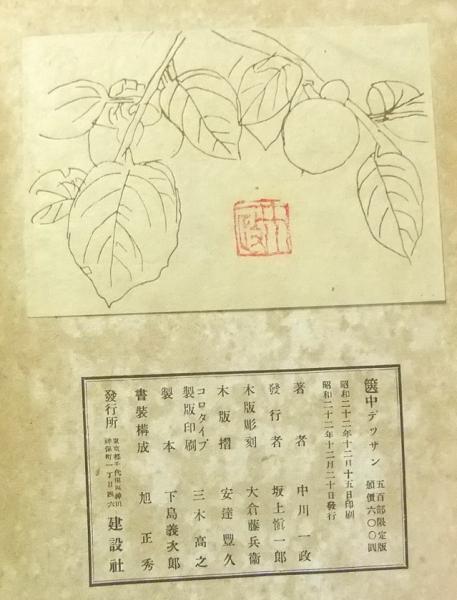 篋中デツサン 五百部限定版
頒價六〇〇圓
昭和二十二年十二月十五日印刷
昭和二十二年十二月二十日發行
著者 中川一政
發行者 坂上愼一郎
木版彫刻 大倉藤兵衞
木版摺 安達豐久
コロタイプ
製版印刷 三木高之
製本 下島義次郎
書裝構成 旭正秀
發行所 東京都千代田區神田
神保町一丁目四六 建設社